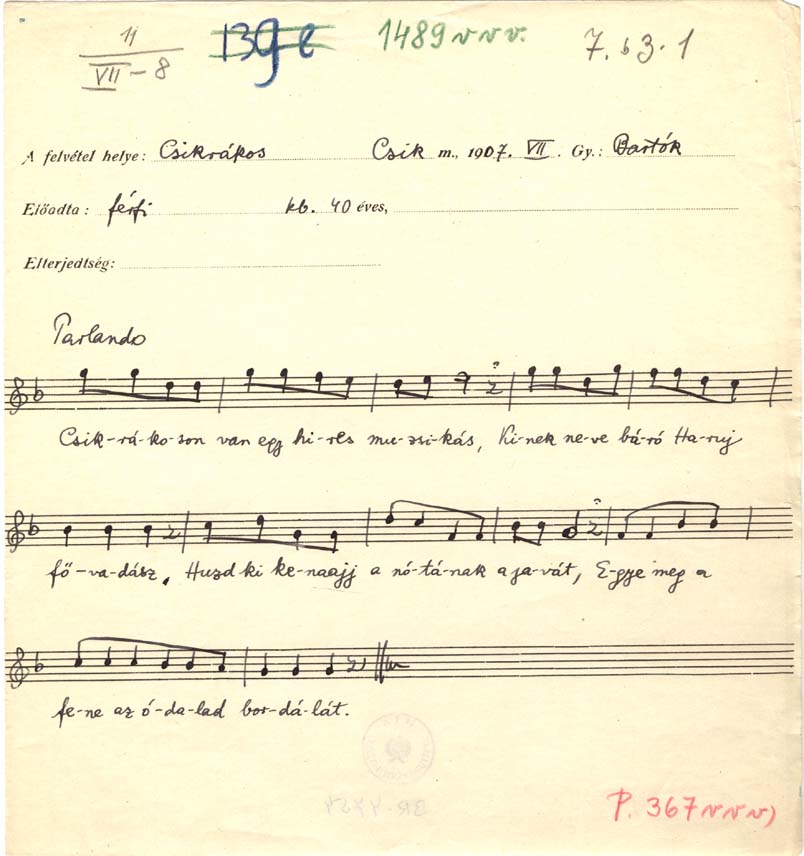 1j
VII – 8
139e
1489 v v v.
7. b 3. 1
A felvétel helye: Csikrákos Csik m., 1907. VII. Gy.: Bartók
Előadta: férfi kb. 40 éves,
Elterjedtség:
Parlando
Csik-rá-ko-son van egy hi-res mu-zsi-kás, Ki-nek ne-ve bá-ró
fő-va-dász, Huzd ki a nó-tá-nak a ja-vát, E-gye meg a
fe-ne az ó-da-lad bor-dá-lát.
P. 367 v v v)